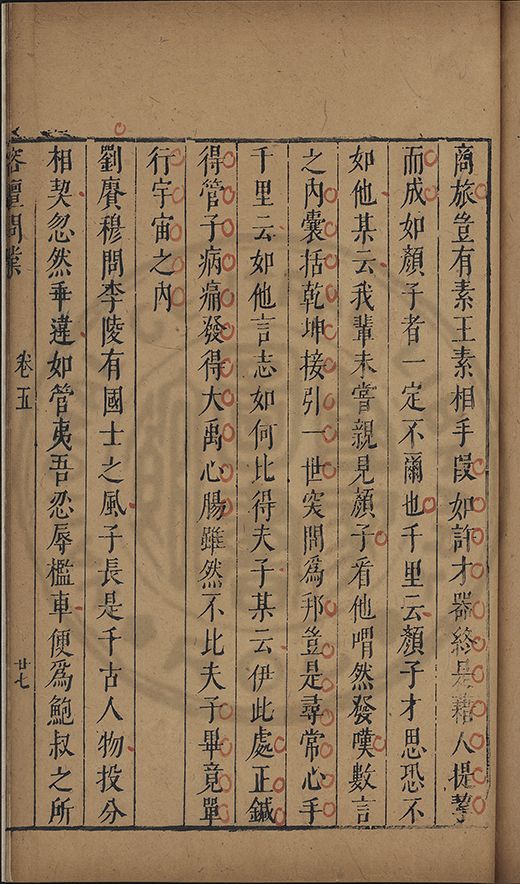 商旅豈有素王素相手段如許才器終是藉人提挈
而成如顏子者一定不爾也千里云顏子才思恐不
如他某云我輩未嘗親見顏子看他喟然發嘆數言
之內囊括乾坤接引一世突問為邦豈是尋常心手
千里云如他言志如何比得夫子某云伊此處正鍼
得管子病痛發得大禹心腸雖然不比夫子畢竟單
行宇宙之內
劉賡穆問李陵有國士之風子長是千古人物投分
相契忽然乖違如管夷吾忍辱檻車便為鮑叔之所
榕壇問業
卷五
廿七